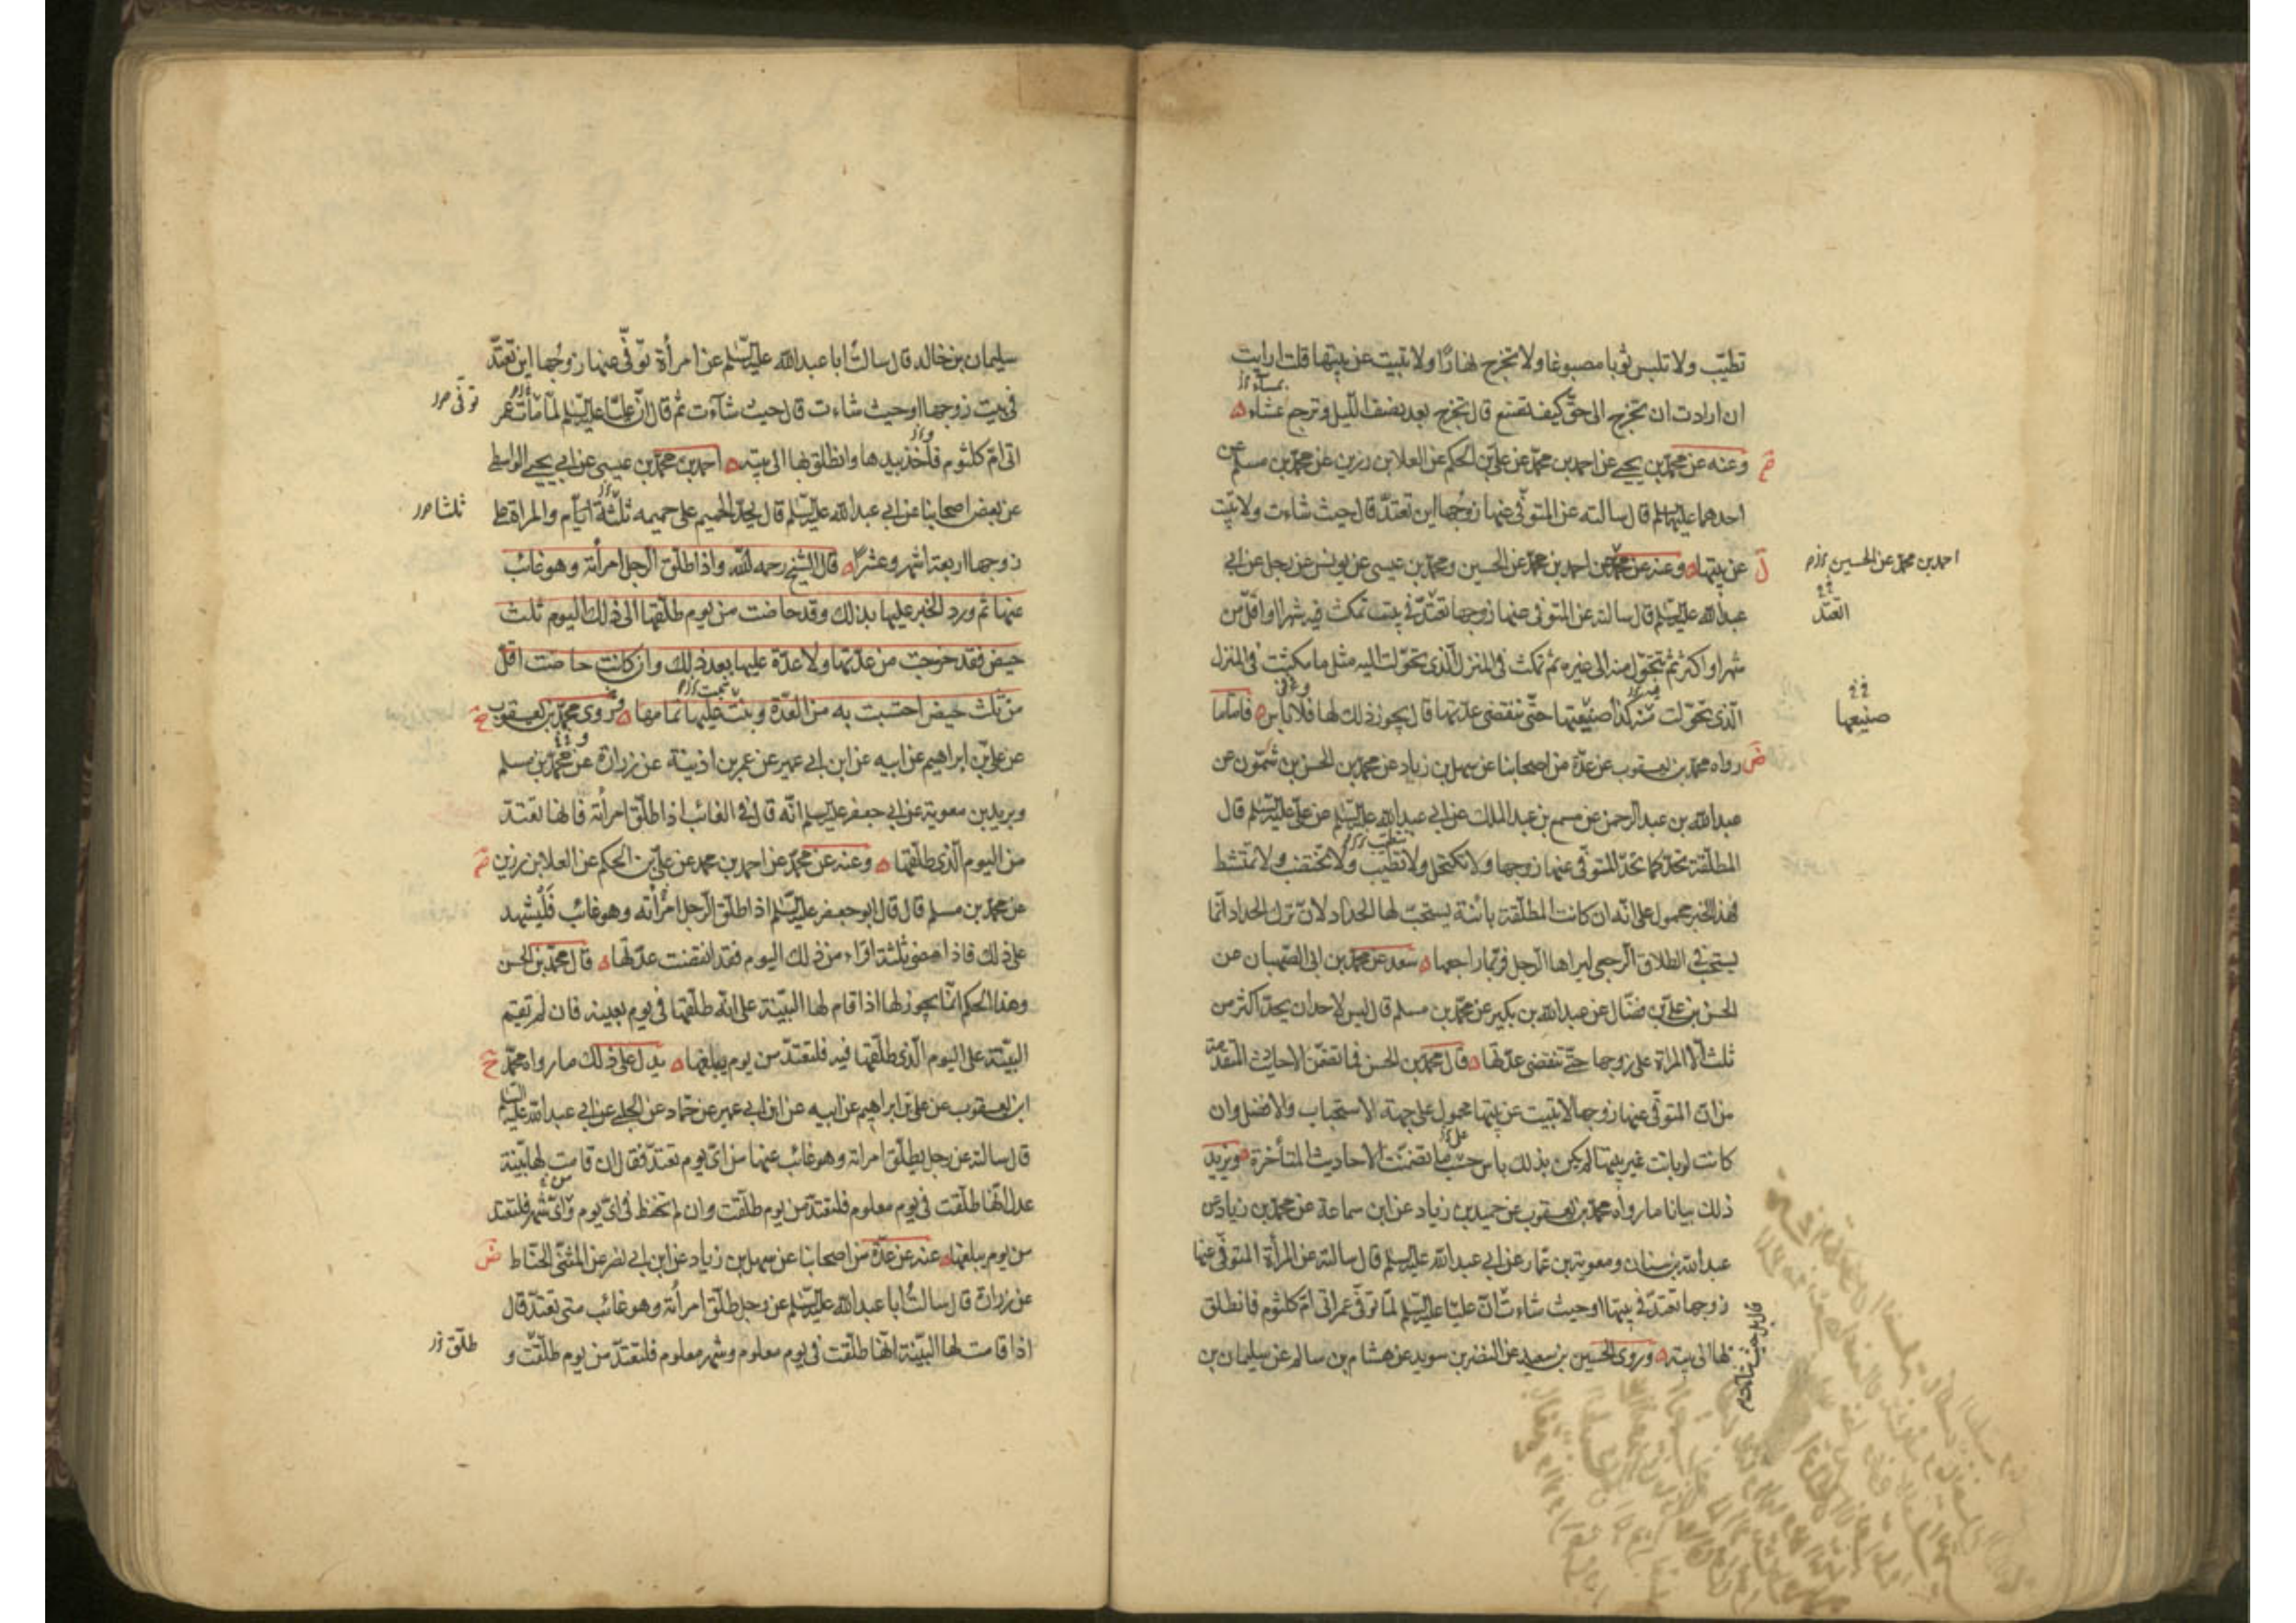 تطيّب ولا تلبس ثوبا مصبوغا ولا تخرج نهارًا ولا تبيت عن بيتها قلت ارايت
ان ارادت ان تخرج الى حقّ كيف تصنع قال تخرج بعد نصف اللّيل وترجع عشاء
وعنه عن محمّد بن يحيى عن احمد بن محمّد عن علىّ بن الحكم عن العلا بن رزين عن محمّد بن مسلم عن
احدهما عليهما السلم قال سالته عن المتوفّى عنها زوجُها اين تعتدّ قال حيث شاءت ولا تبيت
عن بيتها وعنه عن محمّد عن احمد بن محمّد عن الحسين ومحمّد بن عيسى عن يونس عن رجل عن ابى
احمد بن محمّد عن الحسين
عبد الله عليه السّلم قال سالته عن المتوفى عنها زوجها تعتدّ فى بيت تمكث فيه شهرا او اقلّ من
شهر او اكثر ثم تتحوّل منه الى غيره ثم تمكث فى المنزل الّذى تحوّلت اليه مثل ما مكثت فى المنزل
الّذى تحوّلت منه كذا صنيعها حتّى تنقضى عدّتها قال يجوز ذلك لها فلا باس فامّا ما
صنيعها
رواه محمّد بن يعقوب عن عدّة من اصحابنا عن سهل بن زياد عن محمّد بن الحسن بن شمّون عن
عبد الله بن عبد الرحمن عن مسمع بن عبد الملك عن ابى عبد الله عليه السّلم عن علىّ عليه السّلم قال
المطلّقة تحدّ كما تحدّ المتوفّى عنها زوجها ولا تكتحل ولا تطيّب ولا تختضب ولا تمتشط
فهذا الخبر محمول على انّه ان كانت المطلّقة بائنة يستحبّ لها الحداد لانّ ترك الحداد انّما
يستحبّ فى الطلاق الرجعى ليراها الرّجل فربّما راجعها سعد عن محمّد بن ابى الصّهبان عن
الحسن بن علىّ بن فضّال عن عبد الله بن بكير عن محمّد بن مسلم قال ليس لاحد ان يحدّ اكثر من
ثلث الّا المراة على زوجها حتّى تنقضى عدّتها قال محمّد بن الحسن فما تضمّن الاحاديث المتقدّمة
من انّ المتوفّى عنها زوجها لا تبيت عن بيتها محمول على جهة الاستحباب والافضل وان
كانت لو باتت غير بيتها لم يكن بذلك باس حسب ما تضمّنت الاحاديث المتأخّرة ويزيد
ذلك بيانا ما رواه محمّد بن يعقوب عن حميد بن زياد عن ابن سماعة عن محمّد بن زياد عن
عبد الله بن سنان ومعوية بن عمّار عن ابى عبد الله عليه السّلم قال سالته عن المرأة المتوفّى عنها
زوجها تعتدّ فى بيتها او حيث شاءت انّ عليّا عليه السّلم لمّا توفّى عمر اتى امّ كلثوم فانطلق
قال بل حيث شاءت
بها الى بيته وروى الحسين بن سعيد عن النضر بن سويد عن هشام بن سالم عن سليمان بن
سليمان بن خالد قال سالتُ ابا عبد الله عليه السّلم عن امرأة توفّى عنها زوجُها اين تعتدّ
فى بيت زوجها او حيث شاءت قال حيث شآءت ثم قال انّ عليّا عليه السّلم لمّا مات عمر
توفّى
اتى امّ كلثوم فاخذ بيدها وانطلق بها الى بيته احمد بن محمّد بن عيسى عن ابى يحيى الواسطى
عن بعض اصحابنا عن ابى عبد الله عليه السّلم قال يحدّ الحميم على حميمه ثلثة ايّام والمراة على
ثلثا
زوجها اربعة اشهر وعشرًا قال الشيخ رحمه الله واذا طلّق الرّجل امرأته وهو غائب
عنها ثم ورد الخبر عليها بذلك وقد حاضت من يوم طلّقها الى ذلك اليوم ثلث
حيض فقد خرجت من عدّتها ولا عدّة عليها بعد ذلك وان كانت حاضت اقلّ
من ثلث حيض احتسبت به من العدّة وبنت عليها تمامها روى محمّد بن يعقوب
عن علىّ بن ابراهيم عن ابيه عن ابن ابى عمير عن عمر بن اذينة عن زرارة عن محمّد بن مسلم
وبريد بن معوية عن ابى جعفر عليه السّلم انّه قال فى الغائب اذا طلّق امرأته فانها تعتدّ
من اليوم الّذى طلّقها وعنه عن محمّد عن احمد بن محمد عن علىّ بن الحكم عن العلا بن رزين
عن محمّد بن مسلم قال قال ابو جعفر عليه السّلم اذا طلّق الرّجل امرأته وهو غائب فَلْيُشهِد
على ذلك فاذا مضى ثلثة اقراء من ذلك اليوم فقد انقضت عدّتها قال محمّد بن الحسن
وهذا الحكم انّما يجوز لها اذا قام لها البيّنة على انّه طلّقها فى يوم بعينه فان لم تقم
البيّنة على اليوم الّذى طلّقها فيه فلتعتدّ من يوم يبلغها يدل على ذلك ما رواه محمّد
ابن يعقوب عن علىّ بن ابراهيم عن ابيه عن ابن ابى عمير عن حمّاد عن الحلبى عن ابى عبد الله عليه السّلم
قال سالته عن رجل يطلّق امراته وهو غائب عنها من اىّ يوم تعتدّ فقال ان قامت لها بيّنة
عدل انّها طلّقت فى يوم معلوم فلتعتدّ من يوم طلّقت وان لم تحفظ فى اىّ يوم واىّ شهر فلتعتد
من يوم يبلغها عنه عن عدّة من اصحابنا عن سهل بن زياد عن ابن ابى نصر عن المثنّى الحنّاط
عن زرارة قال سالتُ ابا عبد الله عليه السّلم عن رجل طلّق امرأته وهو غائب متى تعتدّ قال
اذا قامت لها البيّنة انّها طلّقت فى يوم معلوم وشهر معلوم فلتعتدّ من يوم طلّقت و
طلّق